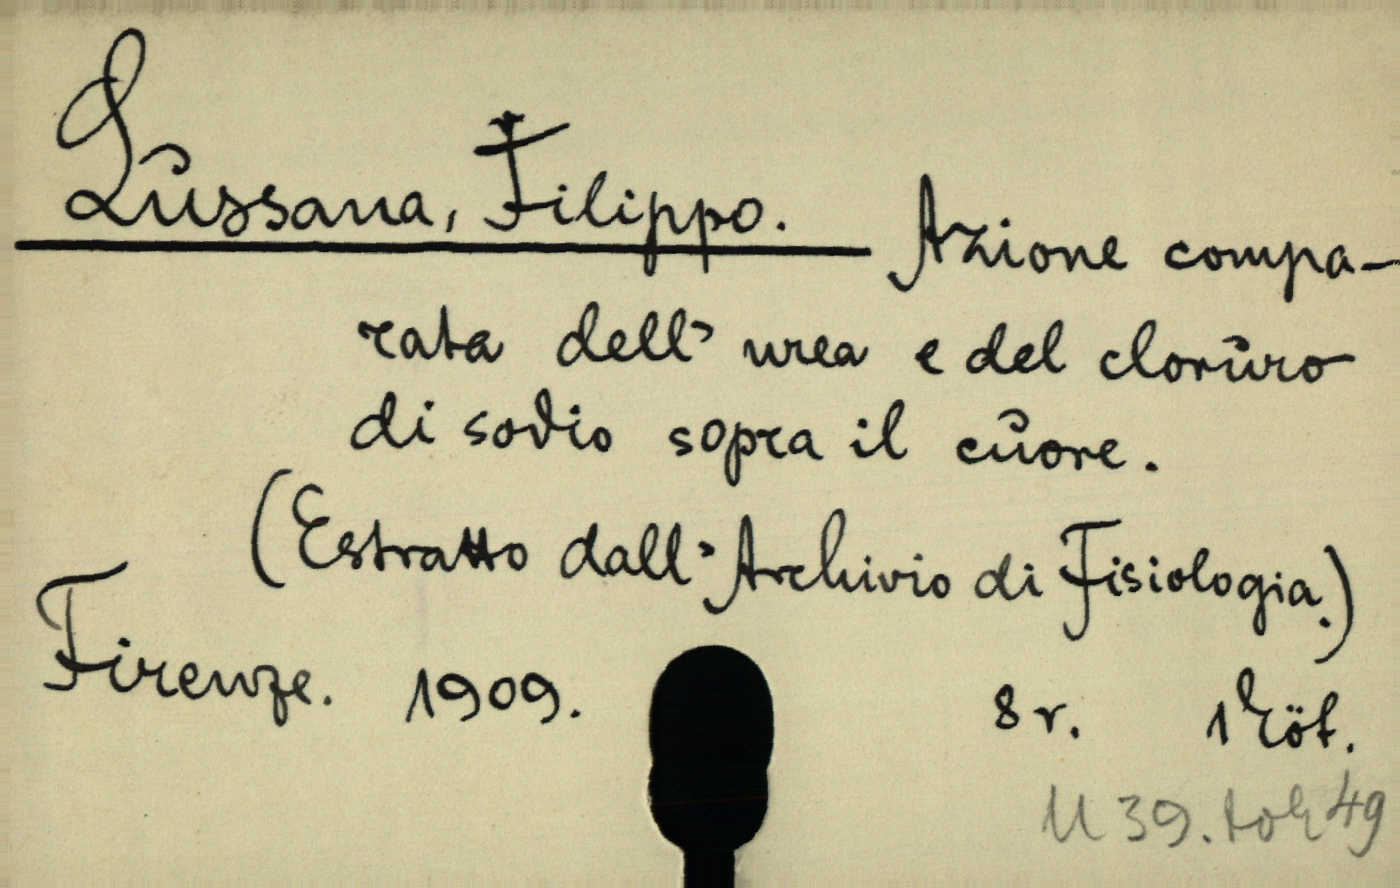 Lussana, Filippo. Azione compa-
rata dell' urea e del cloruro
di sodio sopra il cuore.
(Estratto dall' Archivio di Fisiologia.)
Firenze. 1909. 8 r. 1 Köt.
U 39. tok 49